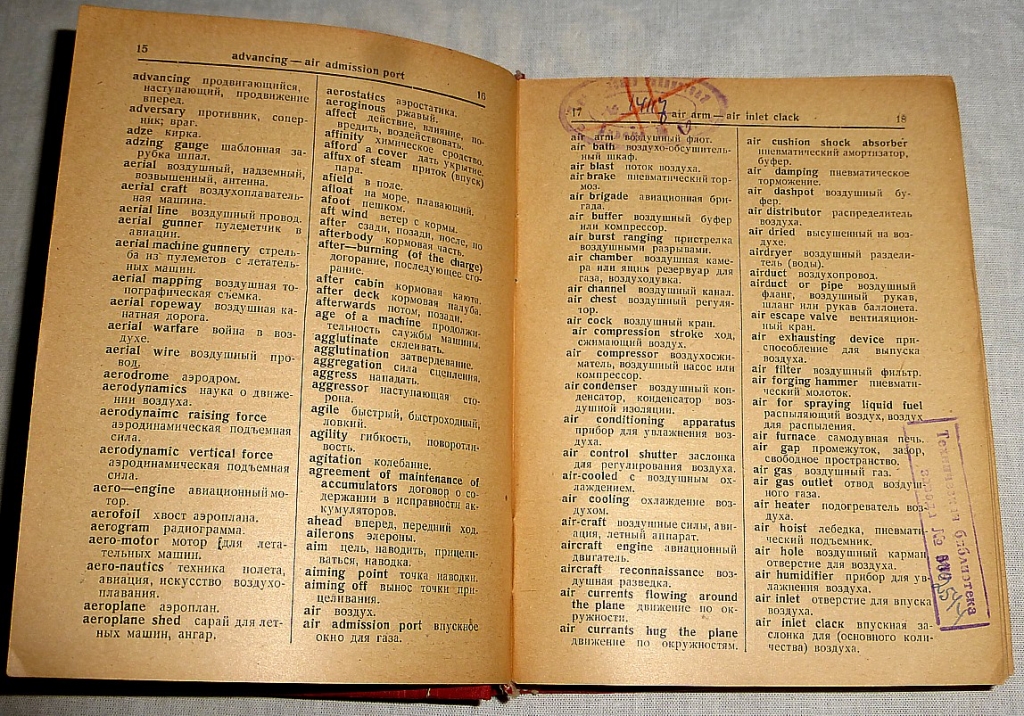 15
advancing — air admission port
16
advancing продвигающийся,
наступающий, продвижение
вперед.
adversary противник, сопер-
ник; враг.
adze кирка.
adzing gauge шаблонная за-
рубка шпал.
aerial воздушный, надземный,
возвышенный, антенна.
aerial craft воздухоплаватель-
ная машина.
aerial line воздушный провод.
aerial gunner пулеметчик в
авиации.
aerial machine gunnery стрель-
ба из пулеметов с летатель-
ных машин.
aerial mapping воздушная то-
пографическая съемка.
aerial ropeway воздушная ка-
натная дорога.
aerial warfare война в воз-
духе.
aerial wire воздушный про-
вод.
aerodrome аэродром.
aerodynamics наука о движе-
нии воздуха.
aerodynaimc raising force
аэродинамическая подъемная
сила.
aerodynamic vertical force
аэродинамическая подъемная
сила.
aero—engine авиационный мо-
тор.
aerofoil хвост аэроплана.
aerogram радиограмма.
aero-motor мотор [для лета-
тельных машин.
aero-nautics техника полета,
авиация, искусство воздухо-
плавания.
aeroplane аэроплан.
aeroplane shed сарай для лет-
ных машин, ангар,
aerostatics аэростатика.
aeroginous ржавый.
affect действие, влияние, по-
вредить, воздействовать.
affinity химическое сродство.
afford a cover дать укрытие.
afflux of steam приток (впуск)
пара.
afield в поле.
afloat на море, плавающий.
afoot пешком,
aft wind ветер с кормы.
after сзади, позади, после, по
afterbody кормовая часть.
after—burning (of the charge)
догорание, последующее сго-
рание.
after cabin кормовая каюта.
after deck кормовая палуба.
afterwards потом, позади.
age of a machine продолжи-
тельность службы машины.
agglutinate склеивать.
agglutination затвердевание.
aggregation сила сцепления.
aggress нападать.
aggressor наступающая сто-
рона.
agile быстрый, быстроходный,
ловкий.
agility гибкость, поворотли-
вость.
agitation колебание.
agreement of maintenance of
accumulators договор о со-
держании в исправности ак-
кумуляторов.
ahead вперед, передний ход.
ailerons элероны.
aim цель, наводить, прицели-
ваться, наводка.
aiming point точка наводки.
aiming off вынос точки при-
целивания.
air воздух.
air admission port впускное
окно для газа.
17
air arm — air inlet clack
18
air arm воздушный флот.
air bath воздухо-обсушитель-
ный шкаф.
air blast поток воздуха.
air brake пневматический тор-
моз.
air brigade авиационная бри-
гада.
air buffer воздушный буфер
или компрессор.
air burst ranging пристрелка
воздушными разрывами.
air chamber воздушная каме-
ра или ящик резервуар для
газа, воздуходувка.
air channel воздушный канал.
air chest воздушный регуля-
тор.
air cock воздушный кран.
air compression stroke ход,
сжимающий воздух.
air compressor воздухосжи-
матель, воздушный насос или
компрессор.
air condenser воздушный кон-
денсатор, конденсатор воз-
душной изоляции.
air conditioning apparatus
прибор для увлажнения воз-
духа.
air control shutter заслонка
для регулирования воздуха.
air-cooled с воздушным ох-
лаждением.
air cooling охлаждение воз-
духом.
air-craft воздушные силы, ави-
ация, летный аппарат.
aircraft engine авиационный
двигатель.
aircraft reconnaissance воз-
душная разведка.
air currents flowing around
the plane движение по ок-
ружности.
air currants hug the plane
движение по окружностям.
air cushion shock absorber
пневматический амортизатор,
буфер.
air damping пневматическое
торможение.
air dashpot воздушный бу-
фер.
air distributor распределитель
воздуха.
air dried высушенный на воз-
духе.
airdryer воздушный раздели-
тель (воды).
airduct воздухопровод.
airduct or pipe воздушный
фланг, воздушный рукав,
шланг или рукав баллонета.
air escape valve вентиляцион-
ный кран.
air exhausting device при-
способление для выпуска
воздуха.
air filter воздушный фильтр.
air forging hammer пневмати-
ческий молоток.
air for spraying liquid fuel
распыляющий воздух, воздух
для распыления.
air furnace самодувная печь.
air gap промежуток, зазор,
свободное пространство.
air gas воздушный газ.
air gas outlet отвод воздуш-
ного газа.
air heater подогреватель воз-
духа.
air hoist лебедка, пневмати-
ческий подъемник.
air hole воздушный карман,
отверстие для воздуха.
air humidifier прибор для ув-
лажнения воздуха.
air inlet отверстие для впуска
воздуха.
air inlet clack впускная за-
слонка для (основного коли-
чества) воздуха.
Техническая библиотека